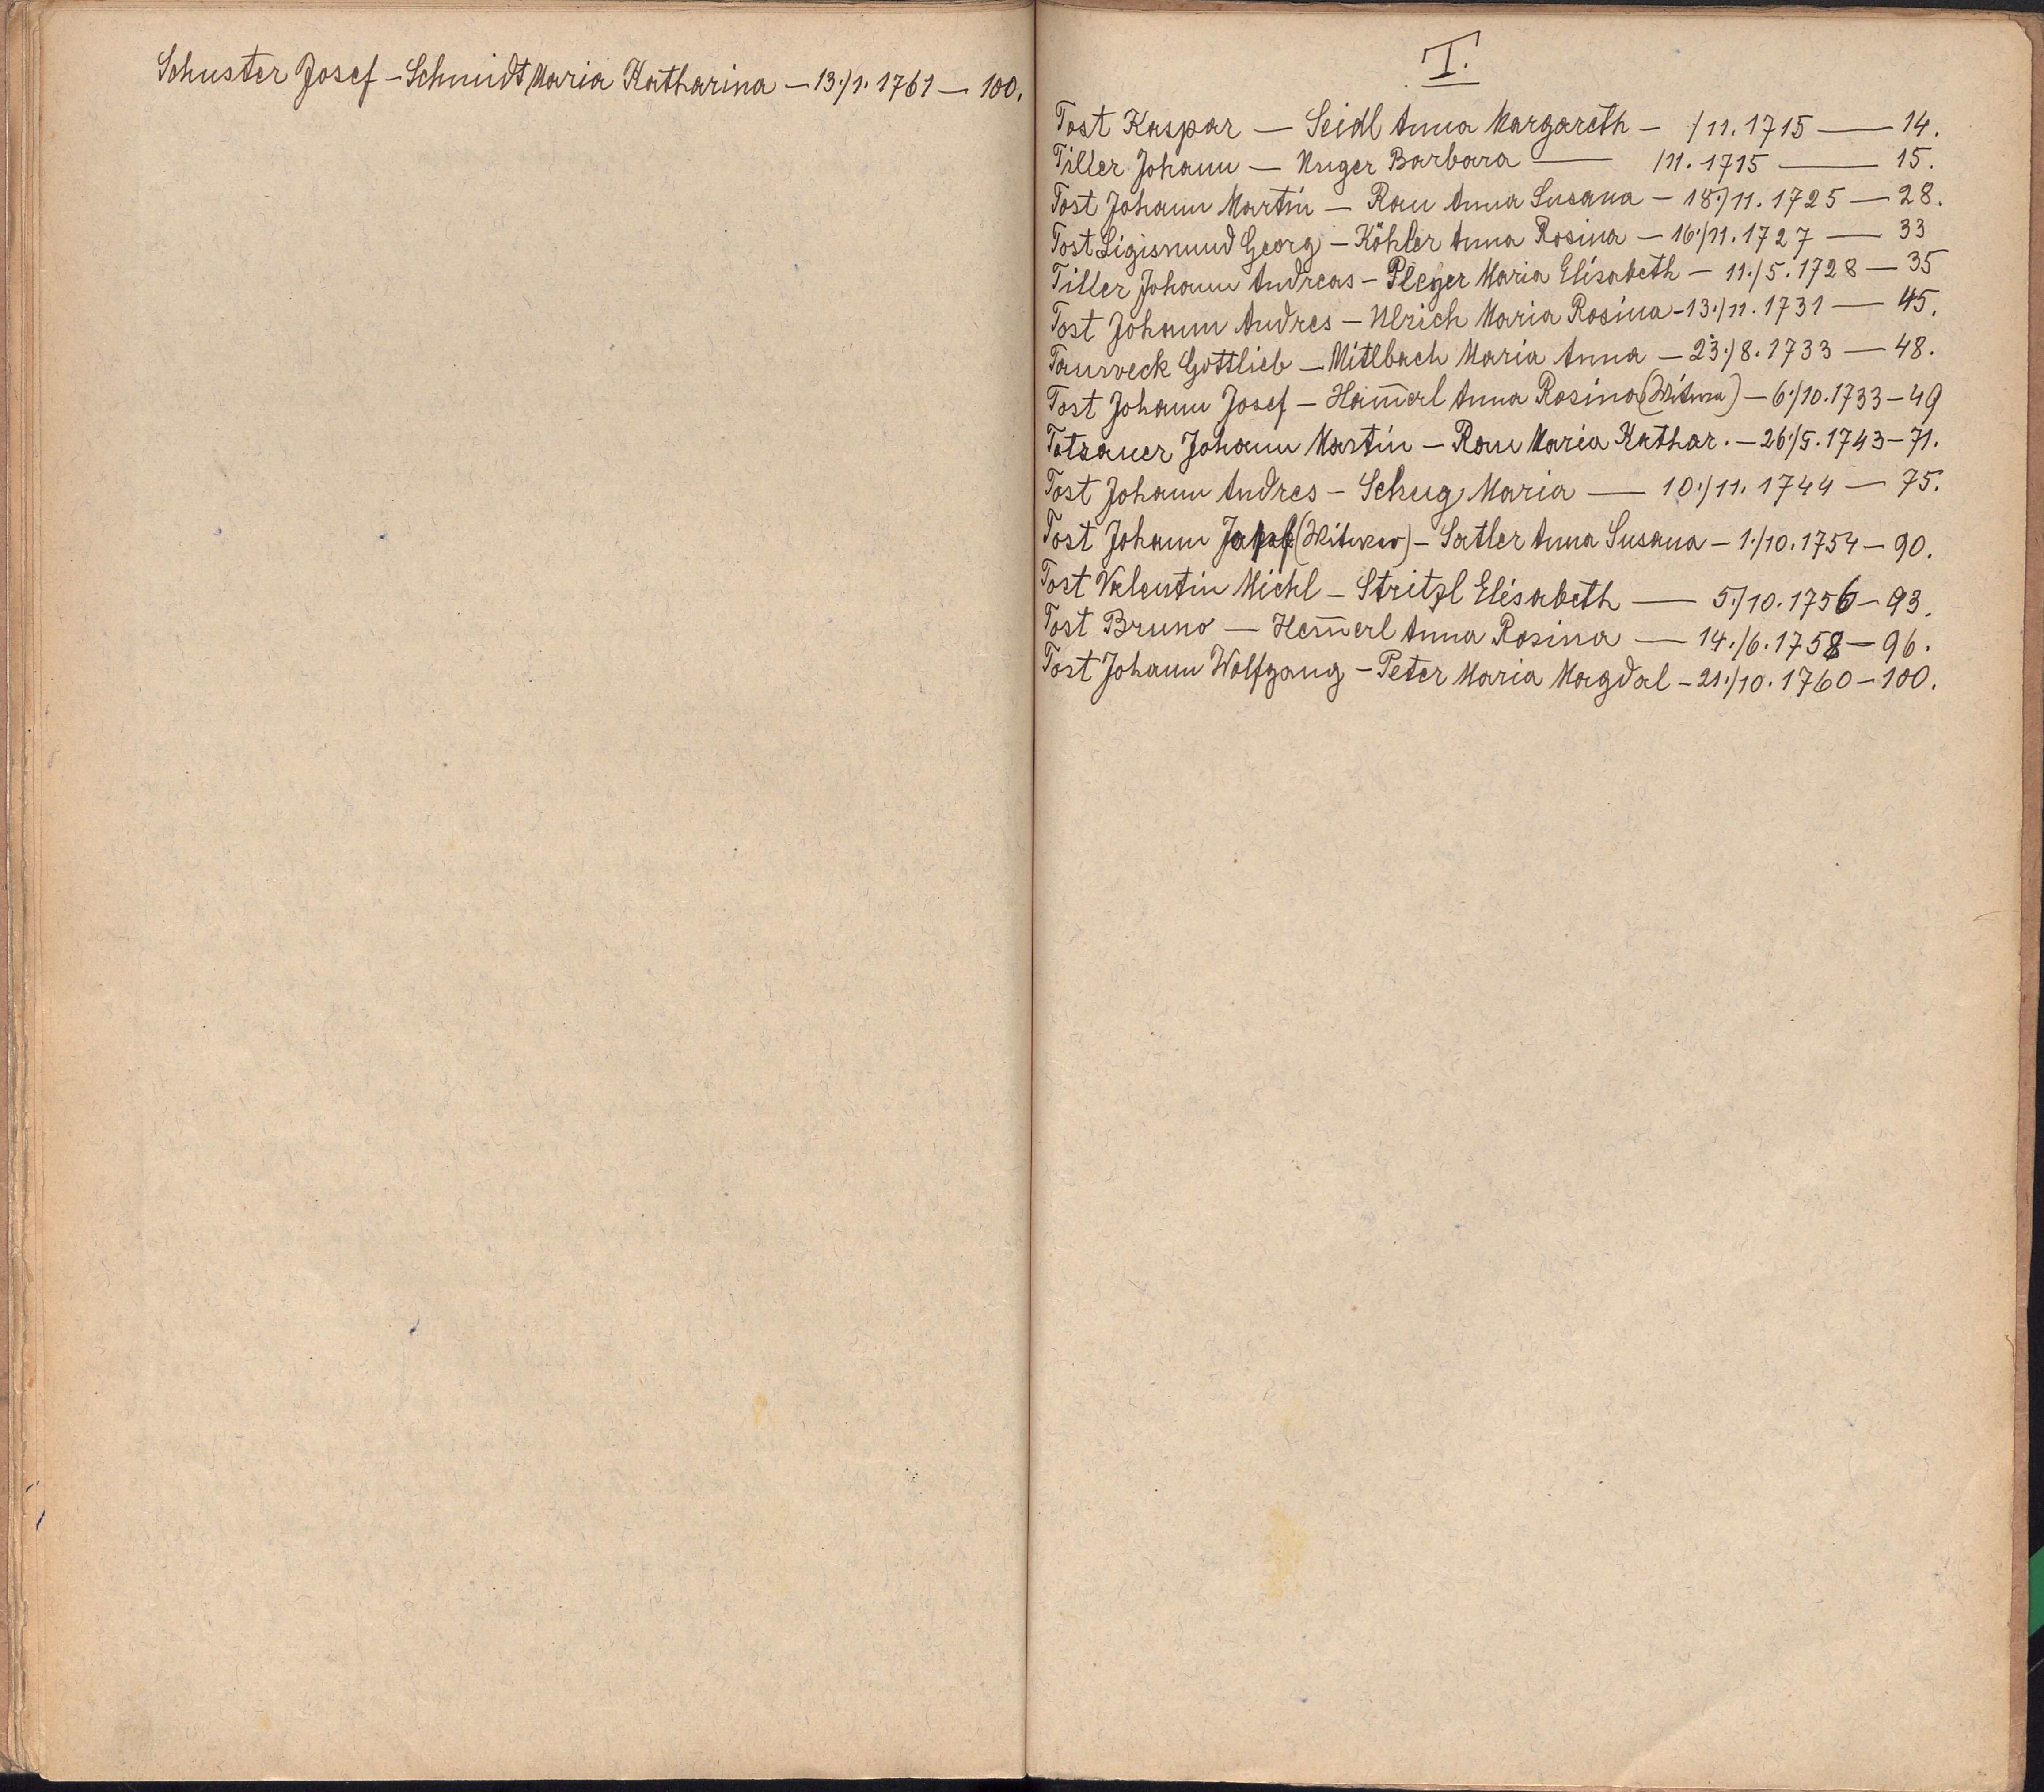 Schuster Josef – Schmidt Maria Katharina – 13./1. 1761 – 100.
T.
Tost Kaspar – Seidl Anna Margareth – /11. 1715 – 14.
Tiller Johann – Unger Barbara – /11. 1715 – 15.
Tost Johann Martin – Rau Anna Susana – 18./11. 1725 – 28.
Tost Sigismund Georg – Köhler Anna Rosina – 16./11. 1727 – 33
Tiller Johann Andreas – Pleyer Maria Elisabeth – 11./5. 1728 – 35
Tost Johann Andres – Ulrich Maria Rosina – 13./11. 1731 – 45.
Gottlieb – Mitlbach Maria Anna – 23./8. 1733 – 48.
Tost Johann Josef – Ham̅erl Anna Rosina (Witwe) – 6./10. 1733 – 49
Totzauer Johann Martin – Rau Maria Kathar. – 26./5. 1743 – 71.
Tost Johann Andres – Schug Maria – 10./11. 1744 – 75.
Tost Johann (Witwer) – Satler Anna Susana – 1./10. 1754 – 90.
Tost Valentin Michl – Stritzl Elisabeth – 5./10. 1756 – 93.
Tost Bruno – Hem̅erl Anna Rosina – 14./6. 1758 – 96.
Tost Johann Wolfgang – Peter Maria Magdal – 21./10. 1760 – 100.